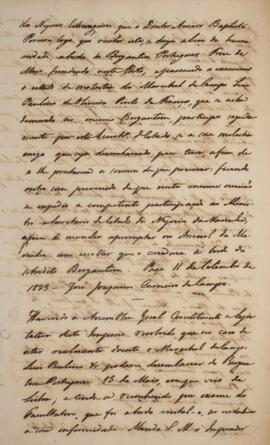 dos Negocios Estrangeiros, que o Doutor Amaro Baptista
Pereira, logo que receba esta, e daqui além da huma
nidade, a bordo do Bergantim Portuguez Treze de
Maio, fundeado neste Porto, e passando a examinar
o estado de molestia do Marechal de Campo Luiz
Paulino de Oliveira Pinto da França, que se acha
demorado no mesmo Bergantim, participe
mente por esta Secretaria d'Estado, se a sua molestia
exige que seja desembarcado para terra, afim de
se lhe prestarem os socorros de que precisar; ficando
outro sim prevenido de que nesta mesma occasião
se expedio a competente participação ao Minis
tro e Secretario d'Estado dos Negocios da Marinha,
afim de mandar apromptar no Arsenal da Ma
rinha um escaler que o conduza a bordo do
dito Bergantim. Paço 11 de Setembro de
1823 José Joaquim Carneiro de Campos.
Havendo a Assemblea Geral Constituinte e Legis
lativa deste Imperio resolvido que no caso de
estar realmente doente o Marechal de Campo
Luiz Paulino, se podesse desembarcar do Bergan
tim Portuguez 13 de Maio, em que veio de
Lisboa, e tendo-se reconhecido por exame do
Facultativo, que foi a bordo visital-o, ser verdadeira
a sua enfermidade: Manda S. M. o Imperador